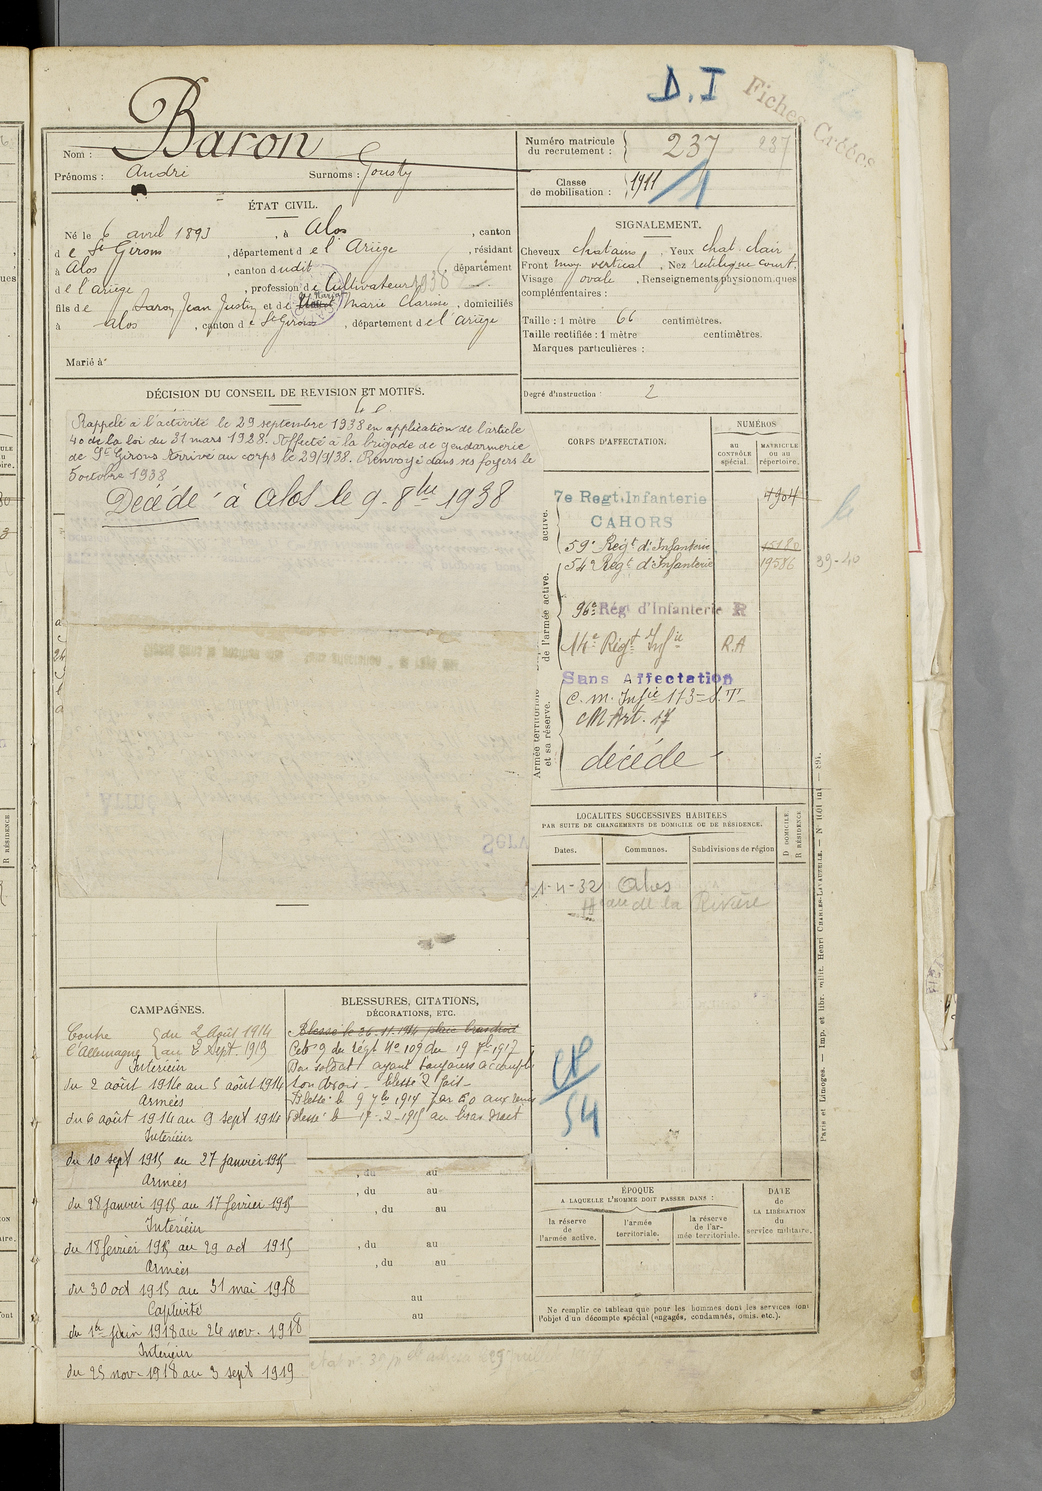 D.I
Fiches Créées
Nom : Baron
Prénoms : André Surnoms : Gousty
Numéro matricule du recrutement : 237 237
Classe de mobilisation : 1911
ÉTAT CIVIL.
Né le 6 avril 1893, à Alos, canton
de St Girons, département de l'Ariège, résidant
à Alos, canton dudit, département
de l'ariège, profession de Cultivateur
fils de Baron Jean Justin et de Marie Clarisse, domiciliés
à alos, canton de St Girons, département de l'ariège
Marié à
SIGNALEMENT.
Cheveux chatains, Yeux chat. clair
Front moy vertical, Nez rectiligne court,
Visage ovale, Renseignements physionomiques
complémentaires :
Taille : 1 mètre 66 centimètres.
Taille rectifiée : 1 mètre centimètres.
Marques particulières :
Degré d'instruction : 2
DÉCISION DU CONSEIL DE REVISION ET MOTIFS.
Rappelé à l'activité le 29 septembre 1938 en application de l'article
40 de la loi du 31 mars 1928. Affecté à la brigade de gendarmerie
de St Girons Arrivé au corps le 29/9/38. Renvoyé dans ses foyers le
5 octobre 1938
Décédé à Alos le 9-8bre 1938
CORPS D'AFFECTATION.
NUMÉROS
AU CONTRÔLE spécial.
MATRICULE OU AU répertoire.
7e Regt. Infanterie
CAHORS
59e Régt d'Infanterie 15180
54e Régt d'Infanterie 19586
39-40
96e Régt d'Infanterie R
14e Régt Infie R.A
Sans Affectation
C. M. Infie 173 - S.T-
CM Art. 17
décédé
active.
de l'armée active.
Armée territoriale et sa réserve.
LOCALITÉS SUCCESSIVES HABITÉES
PAR SUITE DE CHANGEMENTS DE DOMICILE OU DE RÉSIDENCE.
Dates. Communes. Subdivisions de région
D DOMICILE. R RÉSIDENCE
1-4-32 Alos
de la Rivière
CAMPAGNES.
Contre l'Allemagne { du 2 Août 1914
au 2 Sept. 1919
Intérieur
du 2 août 1914 au 5 août 1914
Armées
du 6 août 1914 au 9 sept 1914
Intérieur
du 10 sept 1915 au 27 janvier 1915
Armées
du 28 janvier 1915 au 17 février 1915
Intérieur
du 18 février 1915 au 29 oct 1915
Armées
du 30 oct 1915 au 31 mai 1918
Captivité
du 1er juin 1918 au 24 nov. 1918
Intérieur
du 25 nov. 1918 au 3 sept 1919
BLESSURES, CITATIONS,
DÉCORATIONS, ETC.
Blessé le 26.11.1914
Cité O du régt No 109 du 19 1917
Bon soldat ayant toujours accompli
son devoir - blessé 2 fois -
Blessé le 9 7bre 1914
Blessé le 17-2-1915 au bras droit
, du au
, du au
, du au
, du au
, du au
au
au
CP
54
ÉPOQUE
A LAQUELLE L'HOMME DOIT PASSER DANS :
la réserve de l'armée active.
l'armée territoriale.
la réserve de l'armée territoriale.
DATE de LA LIBÉRATION du service militaire.
Ne remplir ce tableau que pour les hommes dont les services font
l'objet d'un décompte spécial (engagés, condamnés, omis, etc.).
Paris et Limoges. — Imp. et libr. milit. Henri CHARLES-LAVAUZELLE.